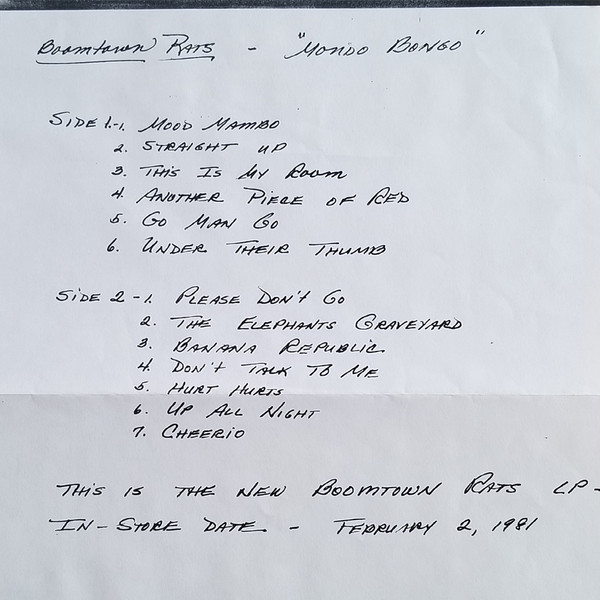 Boomtown Rats - "Mondo Bongo"
Side 1.-1. Mood Mambo
2. Straight Up
3. This Is My Room
4. Another Piece of Red
5. Go Man Go
6. Under Their Thumb
Side 2 - 1. Please Don't Go
2. The Elephants Graveyard
3. Banana Republic
4. Don't Talk To Me
5. Hurt Hurts
6. Up All Night
7. Cheerio
This is the new Boomtown Rats LP -
In-Store Date - February 2, 1981